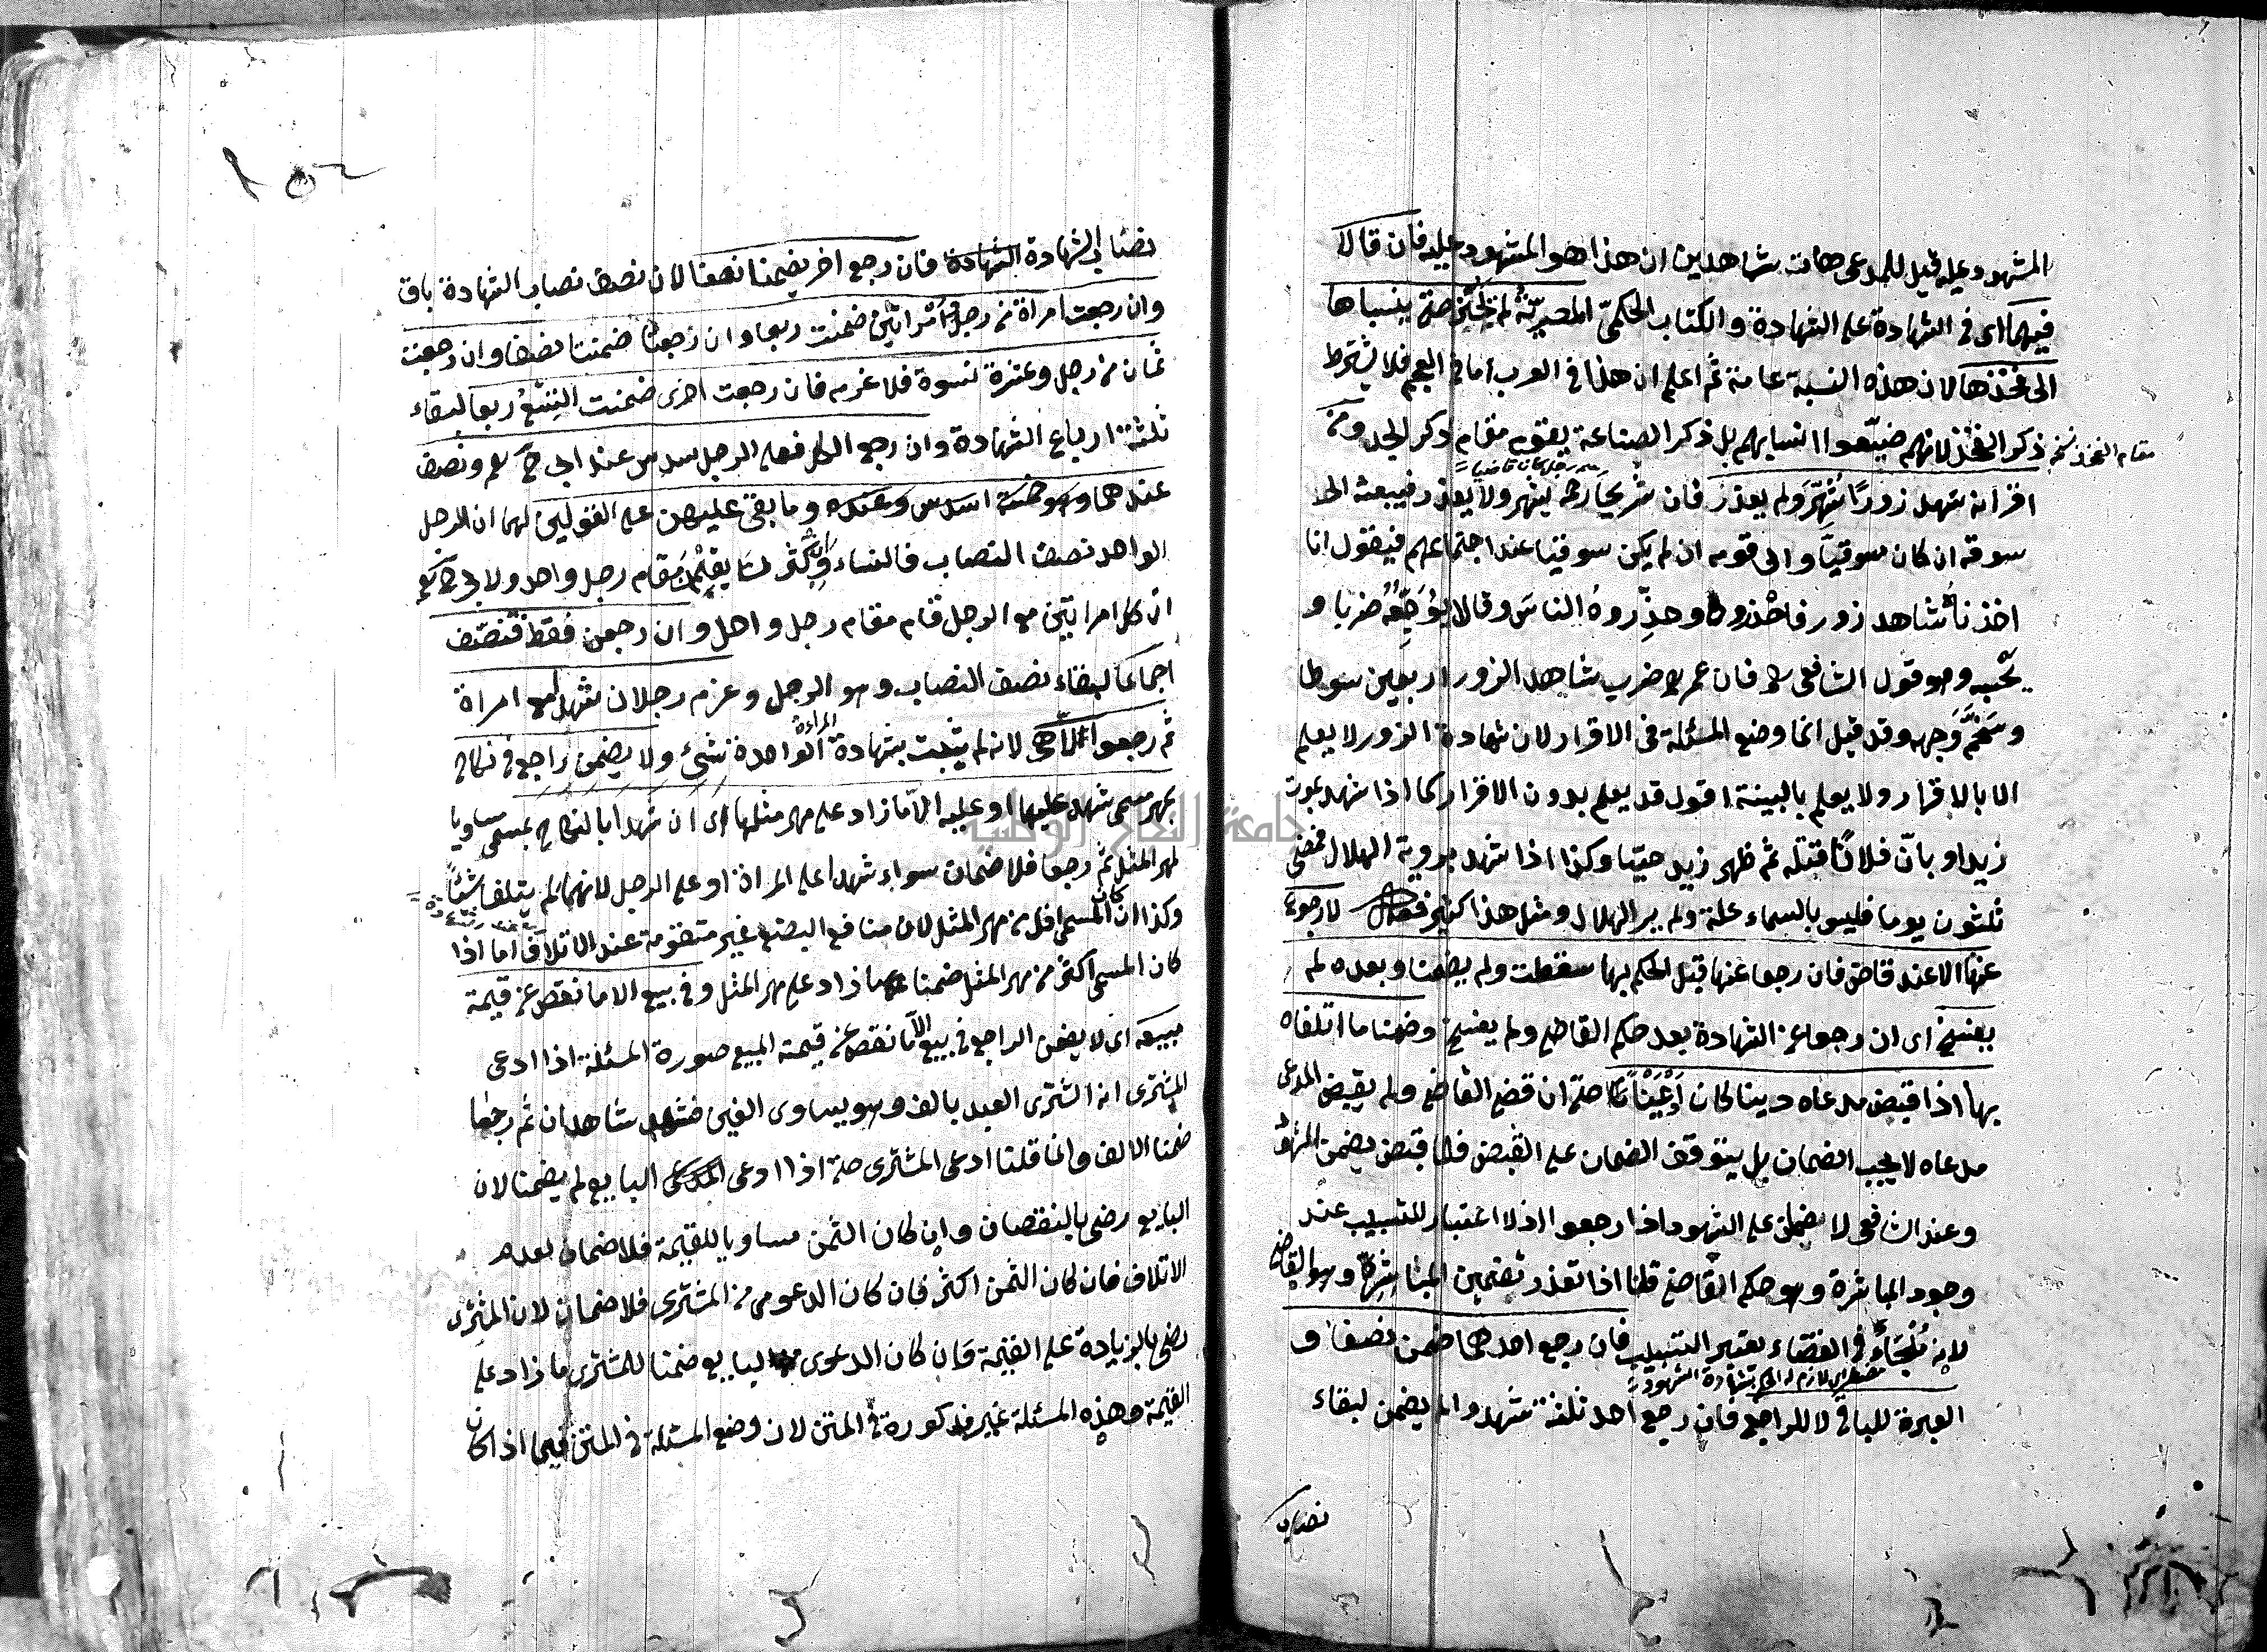 المشهود عليه قيل للمدعى هات شاهدين ان هذا هو المشهود عليه فان قالا
فيهما اى فى الشهادة على الشهادة والكتاب الحكمىّ المصريّة لم تجز حتى ينسباها
الى فخذها لان هذه النسبة عامة ثم اعلم ان هذا فى العرب اما فى العجم فلا يشترط
ذكر الفخذ لانهم ضيّعوا انسابهم بل ذكر الصناعة يقوم مقام ذكر الجد ومن
مقام الفخذ
اقر انه شهد زورًا شُهِّرَ ولم يعذر فان شريحا رحمه يشهر ولا يعذر فيبعثه الى
سوقه ان كان سوقيّا والى قومه ان لم يكن سوقيا عند اجتماعهم فيقول انا
اخذنا شاهد زور فاحذروه وحذِّروهُ الناسَ وقالا يُوجّعُه ضربا و
يحبسه وهو قول الشافعى رحمه فان عمر رض ضرب شاهد الزور اربعين سوطا
وسَخَّمَ وَجهه وقد قيل انما وضع المسئلة فى الاقرار لان شهادة الزور لا يعلم
الا بالاقرار ولا يعلم بالبينة اقول قد يعلم بدون الاقرار كما اذا شهد بموت
زيد او بانّ فلانًا قتله ثم ظهر زيد حيّا وكذا اذا شهد بروية الهلال فمضى
ثلثون يوما فليس بالسماء علة ولم ير الهلال ومثل هذا كثير فصل لا رجوع
عنها الا عند قاض فان رجعا عنها قبل الحكم بها سقطت ولم يضمنا وبعده لم
يفسخ اى ان رجعا عن الشهادة بعد حكم القاضى ولم يفسخ وضمنا ما اتلفاه
بها اذا قبض مدعاه دينا كان اَوْ عَيْنًا حتى ان قضى القاضى ولم يقبض المدعى
مدعاه لا يجب الضمان بل يتوقف الضمان على القبض فلما قبض يضمن الشهود
وعند الشافعى لا ضمان على الشهود اذا رجعوا اذ لا اعتبار للتسبيب عند
وجود المباشرة وهو حكم القاضى قلنا اذا تعذر تضمين المباشرة وهو القاضى
لانه مُلْجَاءٌ فى القضاء يعتبر التسبيب فان رجع احدهما ضمن نصفا و
العبرة للباقى لا للراجع فان رجع احد ثلثة شهدوا لم يضمن لبقاء
نصاب
نصاب الشهادة فان رجع اخر يضمنا نصفا لان نصف نصاب الشهادة باق
وان رجعت امراة من رجل وامراتين ضمنت ربعا وان رجعتا ضمنتا نصفا وان رجعت
ثمان من رجل وعشرة نسوة فلا غرم فان رجعت اخرى ضمنت التسع ربعا لبقاء
ثلثة ارباع الشهادة وان رجع الكل فعلى الرجل سدس عند ابى ح رحمه ونصف
عندهما وهو خمسة اسداس وعنده وما بقى عليهن على القولين لهما ان الرجل
الواحد نصف النصاب فالنساء وان كثرن يقمن مقام رجل واحد ولابى ح رحمه
ان كل امراتين مع الرجل قام مقام رجل واحد وان رجعن فقط فنصّف
اجماعا لبقاء نصف النصاب وهو الرجل وغرم رجلان شهدا مع امراة
ثم رجعوا لا هى لانه لم يثبت بشهادة المراءة الواحدة شىء ولا يضمن راجع فى نكاح
بمهر مسمى شهدا عليها او عليه الّا ما زاد على مهر مثلها اى ان شهدا بالنكاح بمسمى مساويا
لمهر المثل ثم رجعا فلا ضمان سواء شهدا على المراة او على الرجل لانهما لم يتلفا شئًا
وكذا ان كان المسمى اقل من مهر المثل لان منافع البضع غير متقومة عند الاتلاف اما اذا
كان المسمى اكثر من مهر المثل ضمنا ما زاد على مهر المثل وفى بيع الا ما نقص عن قيمة
مبيعه اى لا يضمن الراجع فى بيع الا ما نقص عن قيمته المبيع صورة المسئلة اذا ادعى
المشترى انه اشترى العبد بالف وهو يساوى الفين فشهد شاهدان ثم رجعا
ضمنا الالف وانما قلنا ادعى المشترى حتى اذا ادعى البايع لم يضمنا لان
البايع رضى بالنقصان وان كان الثمن مساويا للقيمة فلا ضمان لعدم
الاتلاف فان كان الثمن اكثر فان كان الدعوى من المشترى فلا ضمان لان المشترى
رضى بالزيادة على القيمة فان كان الدعوى من البايع ضمنا للمشترى ما زاد على
القيمة وهذه المسئلة غير مذكورة فى المتن لان وضع المسئلة فى المتن فيما اذا كان
جامعة النجاح الوطنية